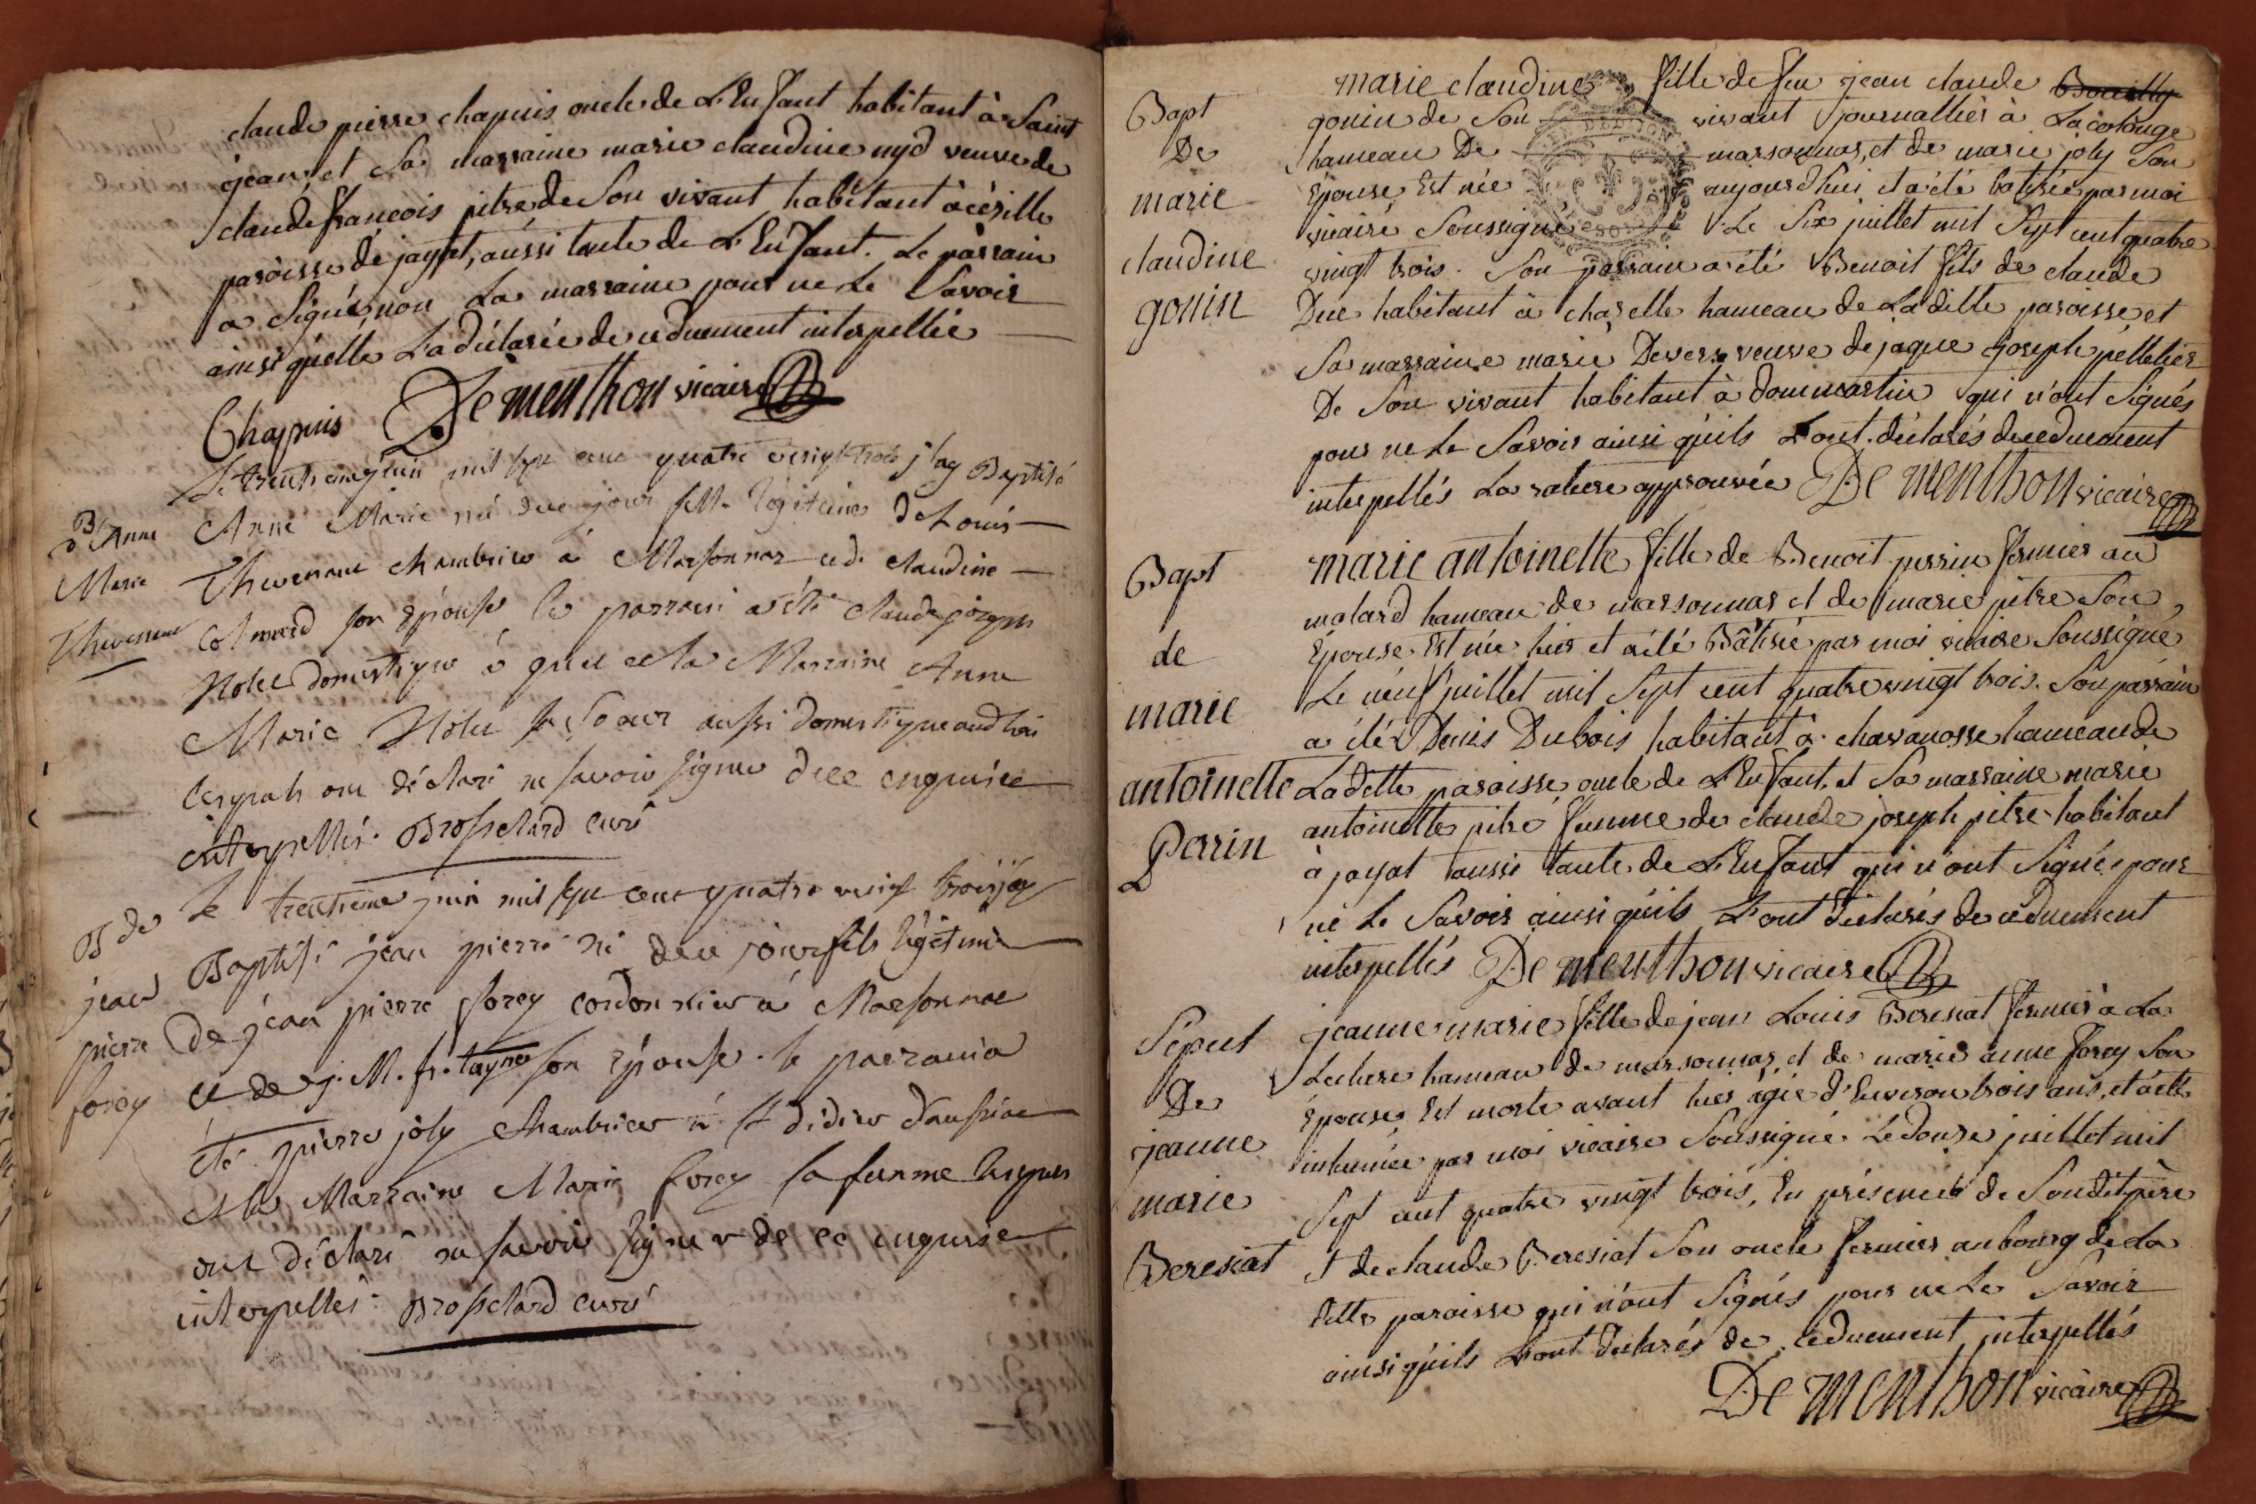 claude pierre chapuis oncle de L'Enfant habitant à Saint
jean, et Sa marraine marie claudine nyd veuve de
claude françois pitre de Son vivant habitant à cézille
paroisse de jayat, aussi tante de L'Enfant. Le parrain
a Signé, non La marraine pour ne Le Savoir
ainsi qu'elle L'a déclarée de ce duement interpellée
Chapuis De menthon vicaire
Le trente juin mil sept cent quatre vingt trois j'ay Baptisé
Bd Anne
Marie
Thevenent
Anne Marie né du jour fille légitime de Louis
Thevenent chambrier à Marsonnas et de claudine
son Epouse le parrain a été claude joseph
domestique à et la Marraine Anne
Marie sa Soeur aussi domestique audit lieu
lesquels ont déclaré ne savoir signer de ce enquise
interpellés. Brosselard curé
B de
jean
pierre
forey
le trentieme juin mil sept cent quatre vingt trois j'ay
Baptisé jean pierre né du jour fils légitime
de jean pierre forey cordonnier à Marsonnas
et de j. M. fr. tayne son épouse. le parrain a
été pierre joly chambrier à St didier d'aussiat
et la Marraine Marie forey sa femme lesques
ont déclaré ne savoir signer de ce enquise
interpellés. Brosselard curé
Bapt
De
marie
claudine
gonin
marie claudine fille de feu jean claude Bouilly
gonin de Son vivant journallier à La colonge
hameau De marsonnas, et de marie joly Son
Epouse Est née aujourd'hui et a été batisée par moi
vicaire Soussigné Le Six juillet mil Sept cent quatre
vingt trois. Son parrain a été Benoit fils de claude
Duc habitant à charelle hameau de La ditte paroisse et
Sa marraine marie Devers veuve de jaque joseph pelletier
De Son vivant habitant à dommartin qui n'ont Signés
pour ne Le Savoir ainsi qu'ils L'ont déclarés de ce duement
interpellés La rature approuvée De menthon vicaire
Bapt
de
marie
antoinette
Perrin
marie antoinette fille de Benoit perrin fermier au
molard hameau de marsonnas et de marie pitre Son
Epouse Est née hier et a été Bâtisée par moi vicaire Soussigné
Le neuf juillet mil Sept cent quatre vingt trois. Son parrain
a été Denis Dubois habitant à chavanosse hameau de
La ditte paroisse oncle de L'Enfant, et Sa marraine marie
antoinette pitre femme de claude joseph pitre habitant
à jayat aussi tante de L'Enfant qui n'ont Signés pour
ne Le Savoir ainsi qu'ils L'ont déclarés de ce duement
interpellés De menthon vicaire
Sépult
De
jeanne
marie
Beresiat
jeanne marie fille de jean Louis Beresiat fermier à La
Lechere hameau de marsonnas, et de marie anne forey Son
Épouse, Est morte avant hier agée d'Environ trois ans, et a été
inhumée par moi vicaire Soussigné Le Douze juillet mil
Sept cent quatre vingt trois, En présence de Son dit père
et de claude Beresiat Son oncle fermier au bourg de La
ditte paroisse qui n'ont Signés pour ne Le Savoir
ainsi qu'ils L'ont déclarés de ce duement interpellés
De menthon vicaire